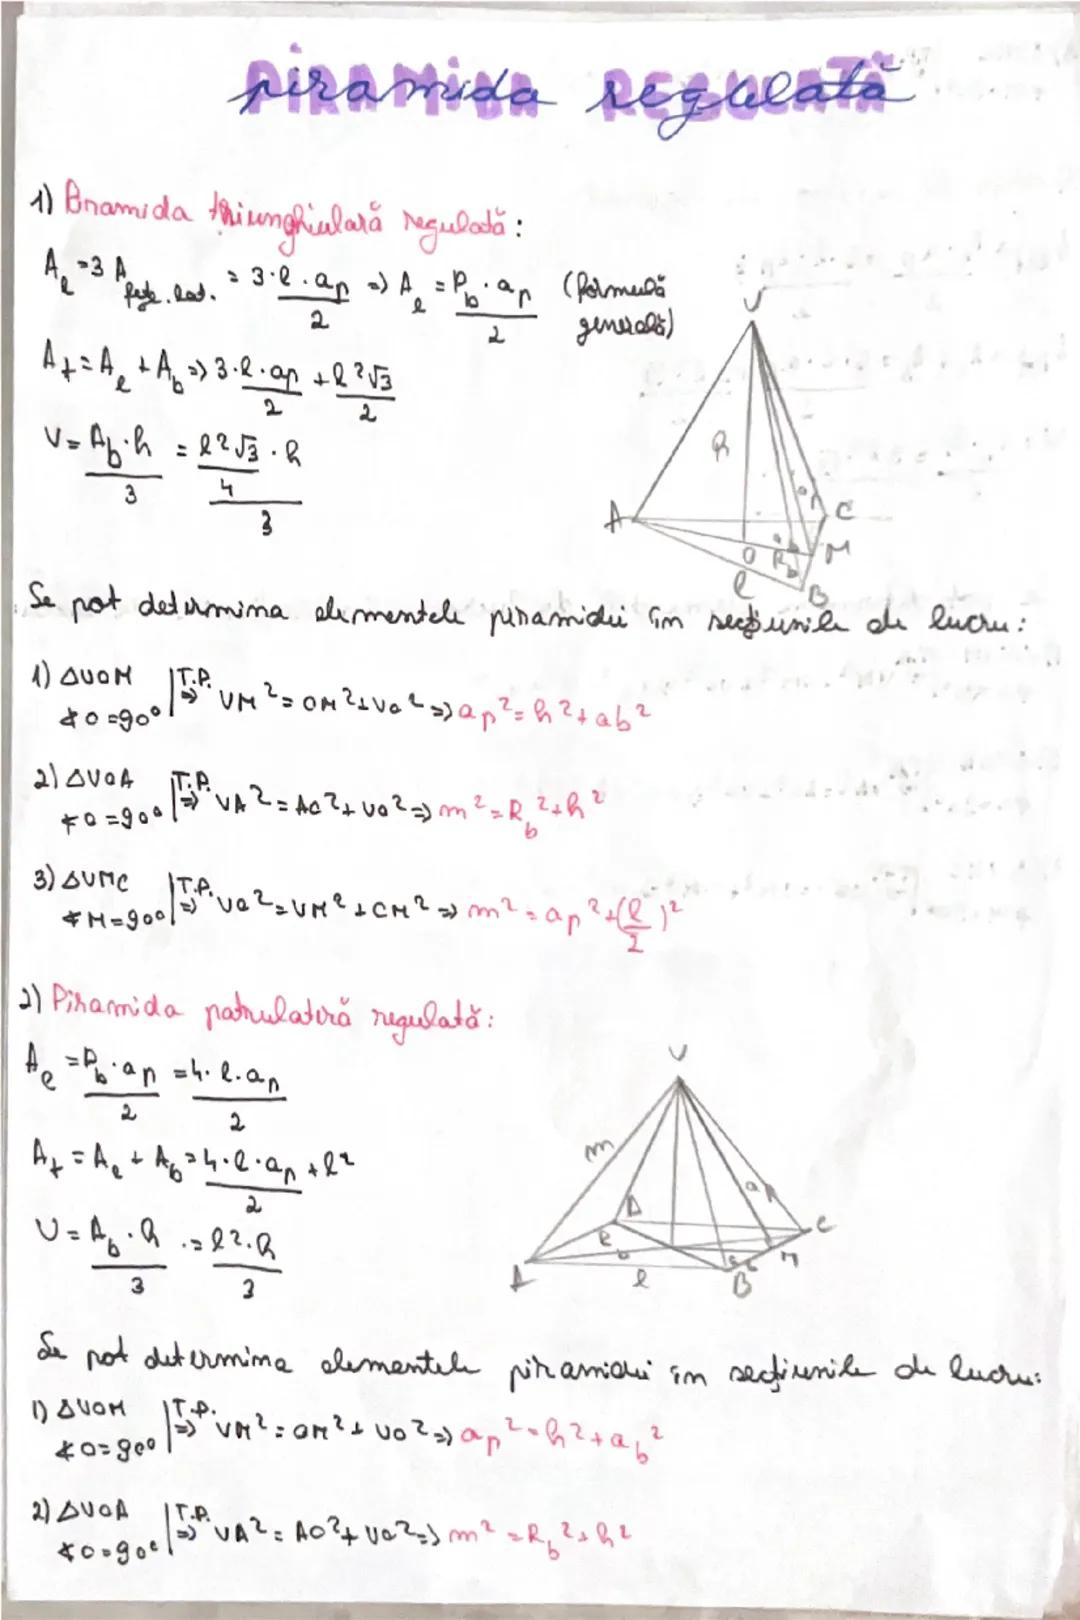 piramida regulată
1) Piramida triunghiulară regulată:
A_l = 3 A_fețe.lat. = 3·l·ap/2 => A_l = P_b·ap/2 (formulă generală)
A_t = A_l + A_b => 3·l·ap/2 + l²√3/2
V = A_b·h/3 = l²√3/4·h/3
V
h
ap
A
C
O
ab
M
l
B
Se pot determina elementele piramidei în secțiunile de lucru:
1) △VOM
∢O=90° | T.P. => VM² = OM²+VO² => ap² = h²+ab²
2) △VOA
∢O=90° | T.P. => VA² = AO²+VO² => m² = R_b²+h²
3) △VMC
∢M=90° | T.P. => VC² = VM²+CM² => m² = ap²+(l/2)²
2) Piramida patrulateră regulată:
A_l = P_b·ap/2 = 4·l·ap/2
A_t = A_l + A_b = 4·l·ap/2 + l²
V = A_b·h/3 = l²·h/3
V
m
ap
D
C
M
A
l
B
Se pot determina elementele piramidei în secțiunile de lucru:
1) △VOM
∢O=90° | T.P. => VM² = OM²+VO² => ap² = h²+a_b²
2) △VOA
∢O=90° | T.P. => VA² = AO²+VO² => m² = R_b²+h²